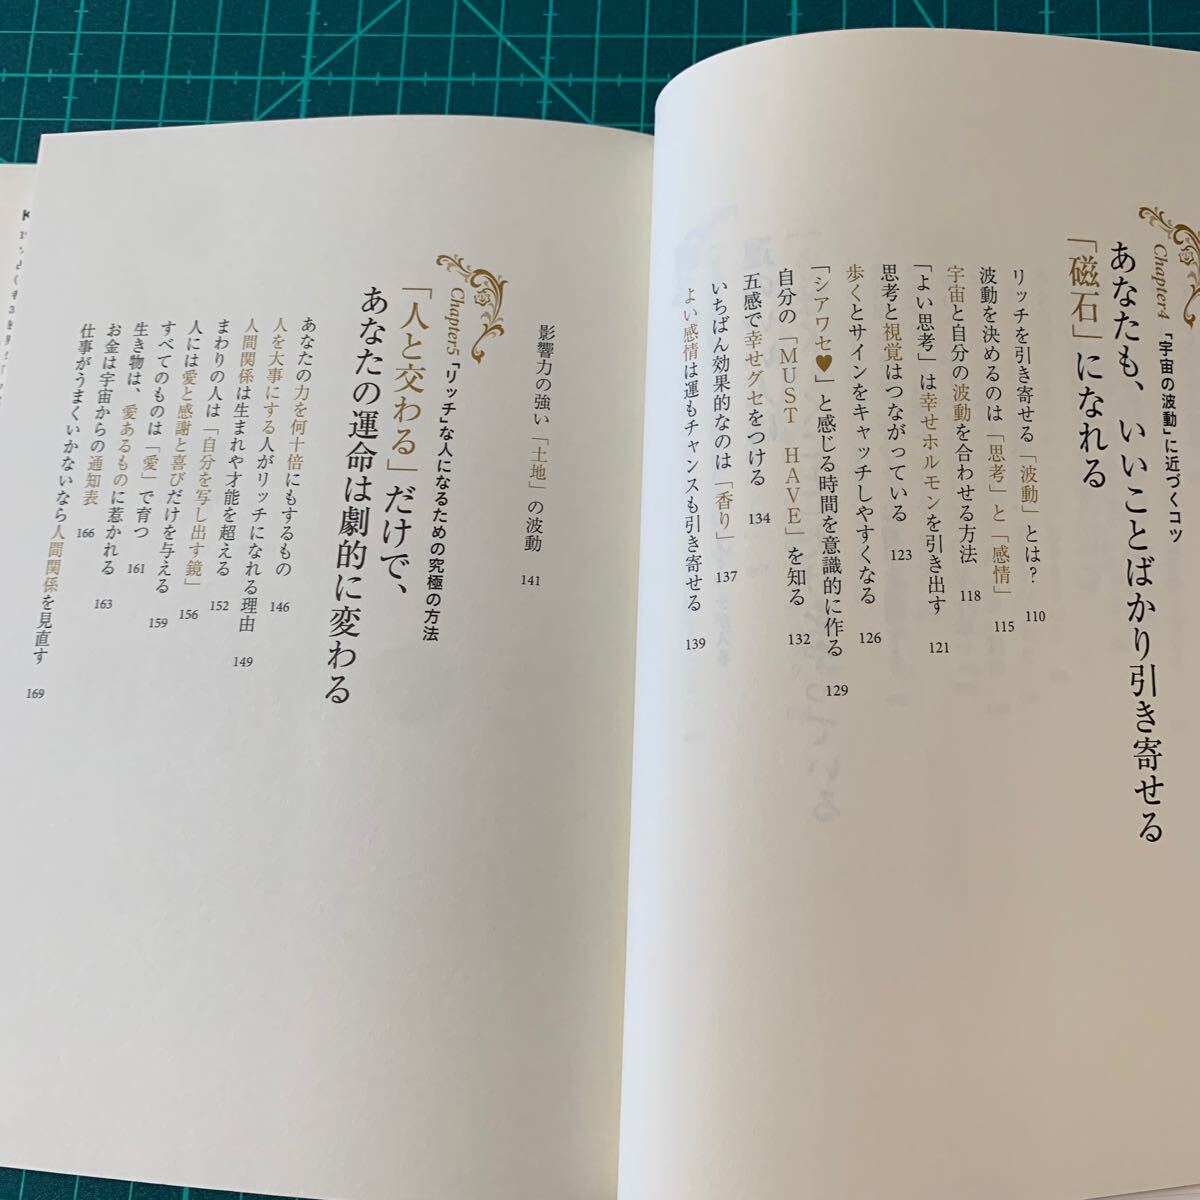 Chapter4
「宇宙の波動」に近づくコツ
あなたも、いいことばかり引き寄せる
「磁石」になれる
リッチを引き寄せる「波動」とは? 110
波動を決めるのは「思考」と「感情」 115
宇宙と自分の波動を合わせる方法 118
「よい思考」は幸せホルモンを引き出す 121
思考と視覚はつながっている 123
歩くとサインをキャッチしやすくなる 126
「シアワセ♥」と感じる時間を意識的に作る 129
自分の「MUST HAVE」を知る 132
五感で幸せグセをつける 134
いちばん効果的なのは「香り」 137
よい感情は運もチャンスも引き寄せる 139
影響力の強い「土地」の波動 141
Chapter5
「リッチ」な人になるための究極の方法
「人と交わる」だけで、
あなたの運命は劇的に変わる
あなたの力を何十倍にもするもの 146
人を大事にする人がリッチになれる理由 149
人間関係は生まれや才能を超える 152
まわりの人は「自分を写し出す鏡」 156
人には愛と感謝と喜びだけを与える 159
すべてのものは「愛」で育つ 161
生き物は、愛あるものに惹かれる 163
お金は宇宙からの通知表 166
仕事がうまくいかないなら人間関係を見直す 169